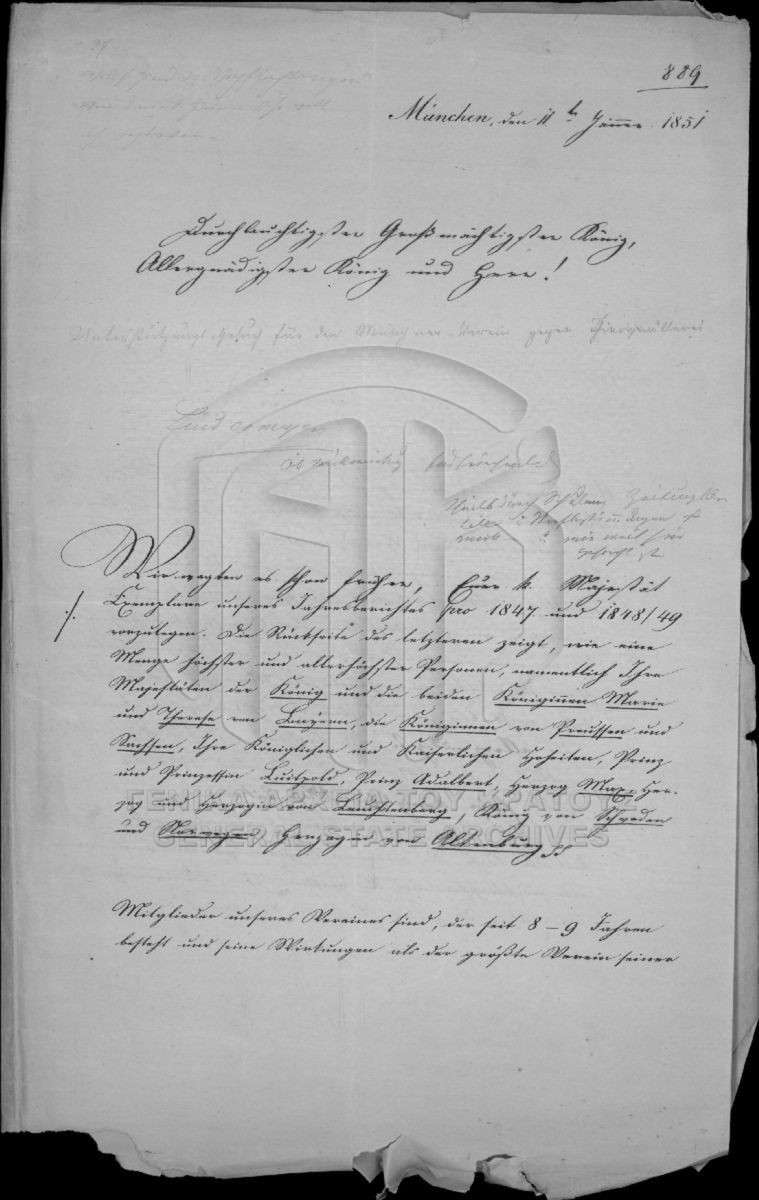 889
München, den 11t Jänner 1851
Durchlauchtigster Großmächtigster König,
Allergnädigster König und Herr!
Unterstützungs-Gesuch für den Münchner-Verein gegen Thierquälerei
Wir wagten es schon früher, Euer k. Majestät
Exemplare unseres Jahresberichtes pro 1847 und 1848/49
vorzulegen. Die Rückseite des letzteren zeigt, wie eine
Menge höchster und allerhöchster Personen, namentlich Ihre
Majestäten der König und die beiden Königinnen Marie
und Therese von Bayern, die Königinnen von Preussen und
Sachsen, Ihre Königlichen und Kaiserlichen Hoheiten, Prinz
und Prinzessin Luitpold, Prinz Adalbert, Herzog Max, Her-
zog und Herzogin von Leuchtenberg, König von Schweden
und Norwegen, Herzogin von Altenburg
ΓΕΝΙΚΑ ΑΡΧΕΙΑ ΤΟΥ ΚΡΑΤΟΥΣ
GENERAL STATE ARCHIVES
Mitglieder unseres Vereines sind, der seit 8 – 9 Jahren
besteht und seine Wirkungen als der größte Verein seiner